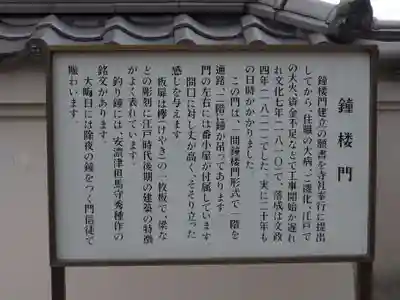 鐘楼門
鐘楼門建立の願書を寺社奉行に提出
してから、住職の大病、ご遷化、江戸で
の大火、資金不足などで工事開始が遅れ
れ文化七年(一八一〇)で、落成は文政
四年(一八二一)でした。実に二十年も
の日時がかかりました。
この門は、一間鐘楼門形式で一階を
通路、二階に鐘が吊ってあります
門の左右には番小屋が付属しています。
間口に対し丈が高く、そそり立った
感じを与えます
板扉は欅(けやき)の一枚板で、梁な
どの彫刻に江戸時代後期の建築の特徴
がよく表れています。
釣り鐘には、安濃津但馬守秀種作の
銘文があります。
大晦日には除夜の鐘をつく門信徒で
賑わいます。